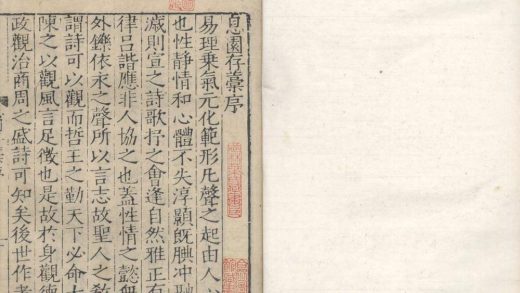 息園存藁序
易理乗氣元化範形凡聲之起由人心
也性静情和心體不失淳顥旣腆冲聴
滅則宣之詩歌抒之會逢自然雅正有
律吕諧應非人協之也蓋性情之懿無
外鑠依永之聲所以言志故聖人之敎
謂詩可以觀而哲王之勤天下必命太
陳之以觀風言足徴也是故扵身觀德
政觀治商周之盛詩可知矣後世作者